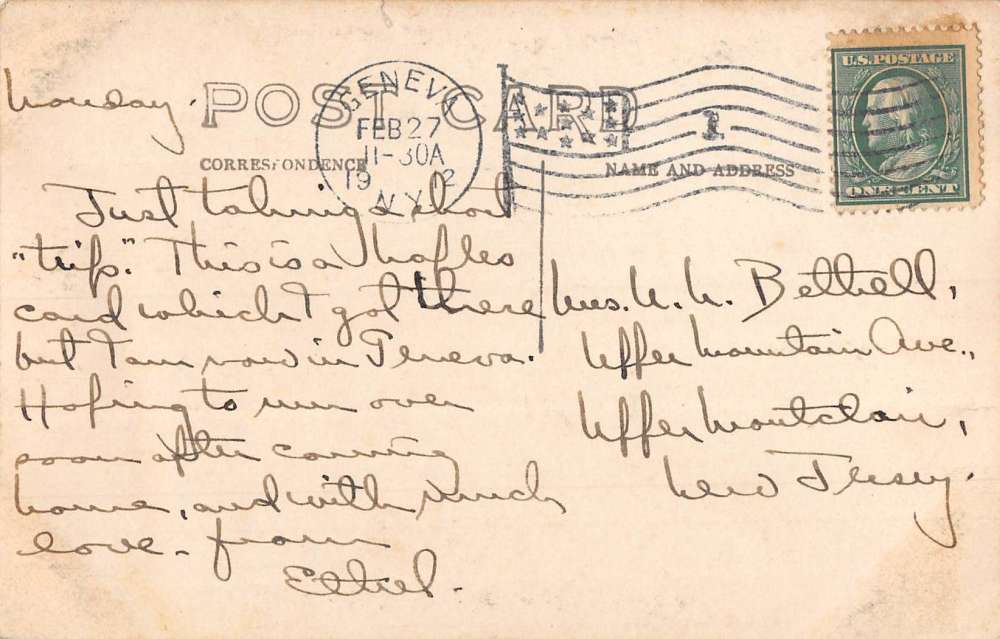 Monday.
POST CARD
GENEVA
FEB 27
11-30A
19 2
N.Y.
1
U.S. POSTAGE
ONE CENT
CORRESPONDENCE
NAME AND ADDRESS
Just taking a short
"trip." This is a Naples
card which I got there
but I am now in Geneva.
Hoping to run over
soon after coming
home, and with much
love - from
Ethel.
Mrs. Bethell,
Upper Mountain Ave.,
Upper Montclair,
New Jersey.